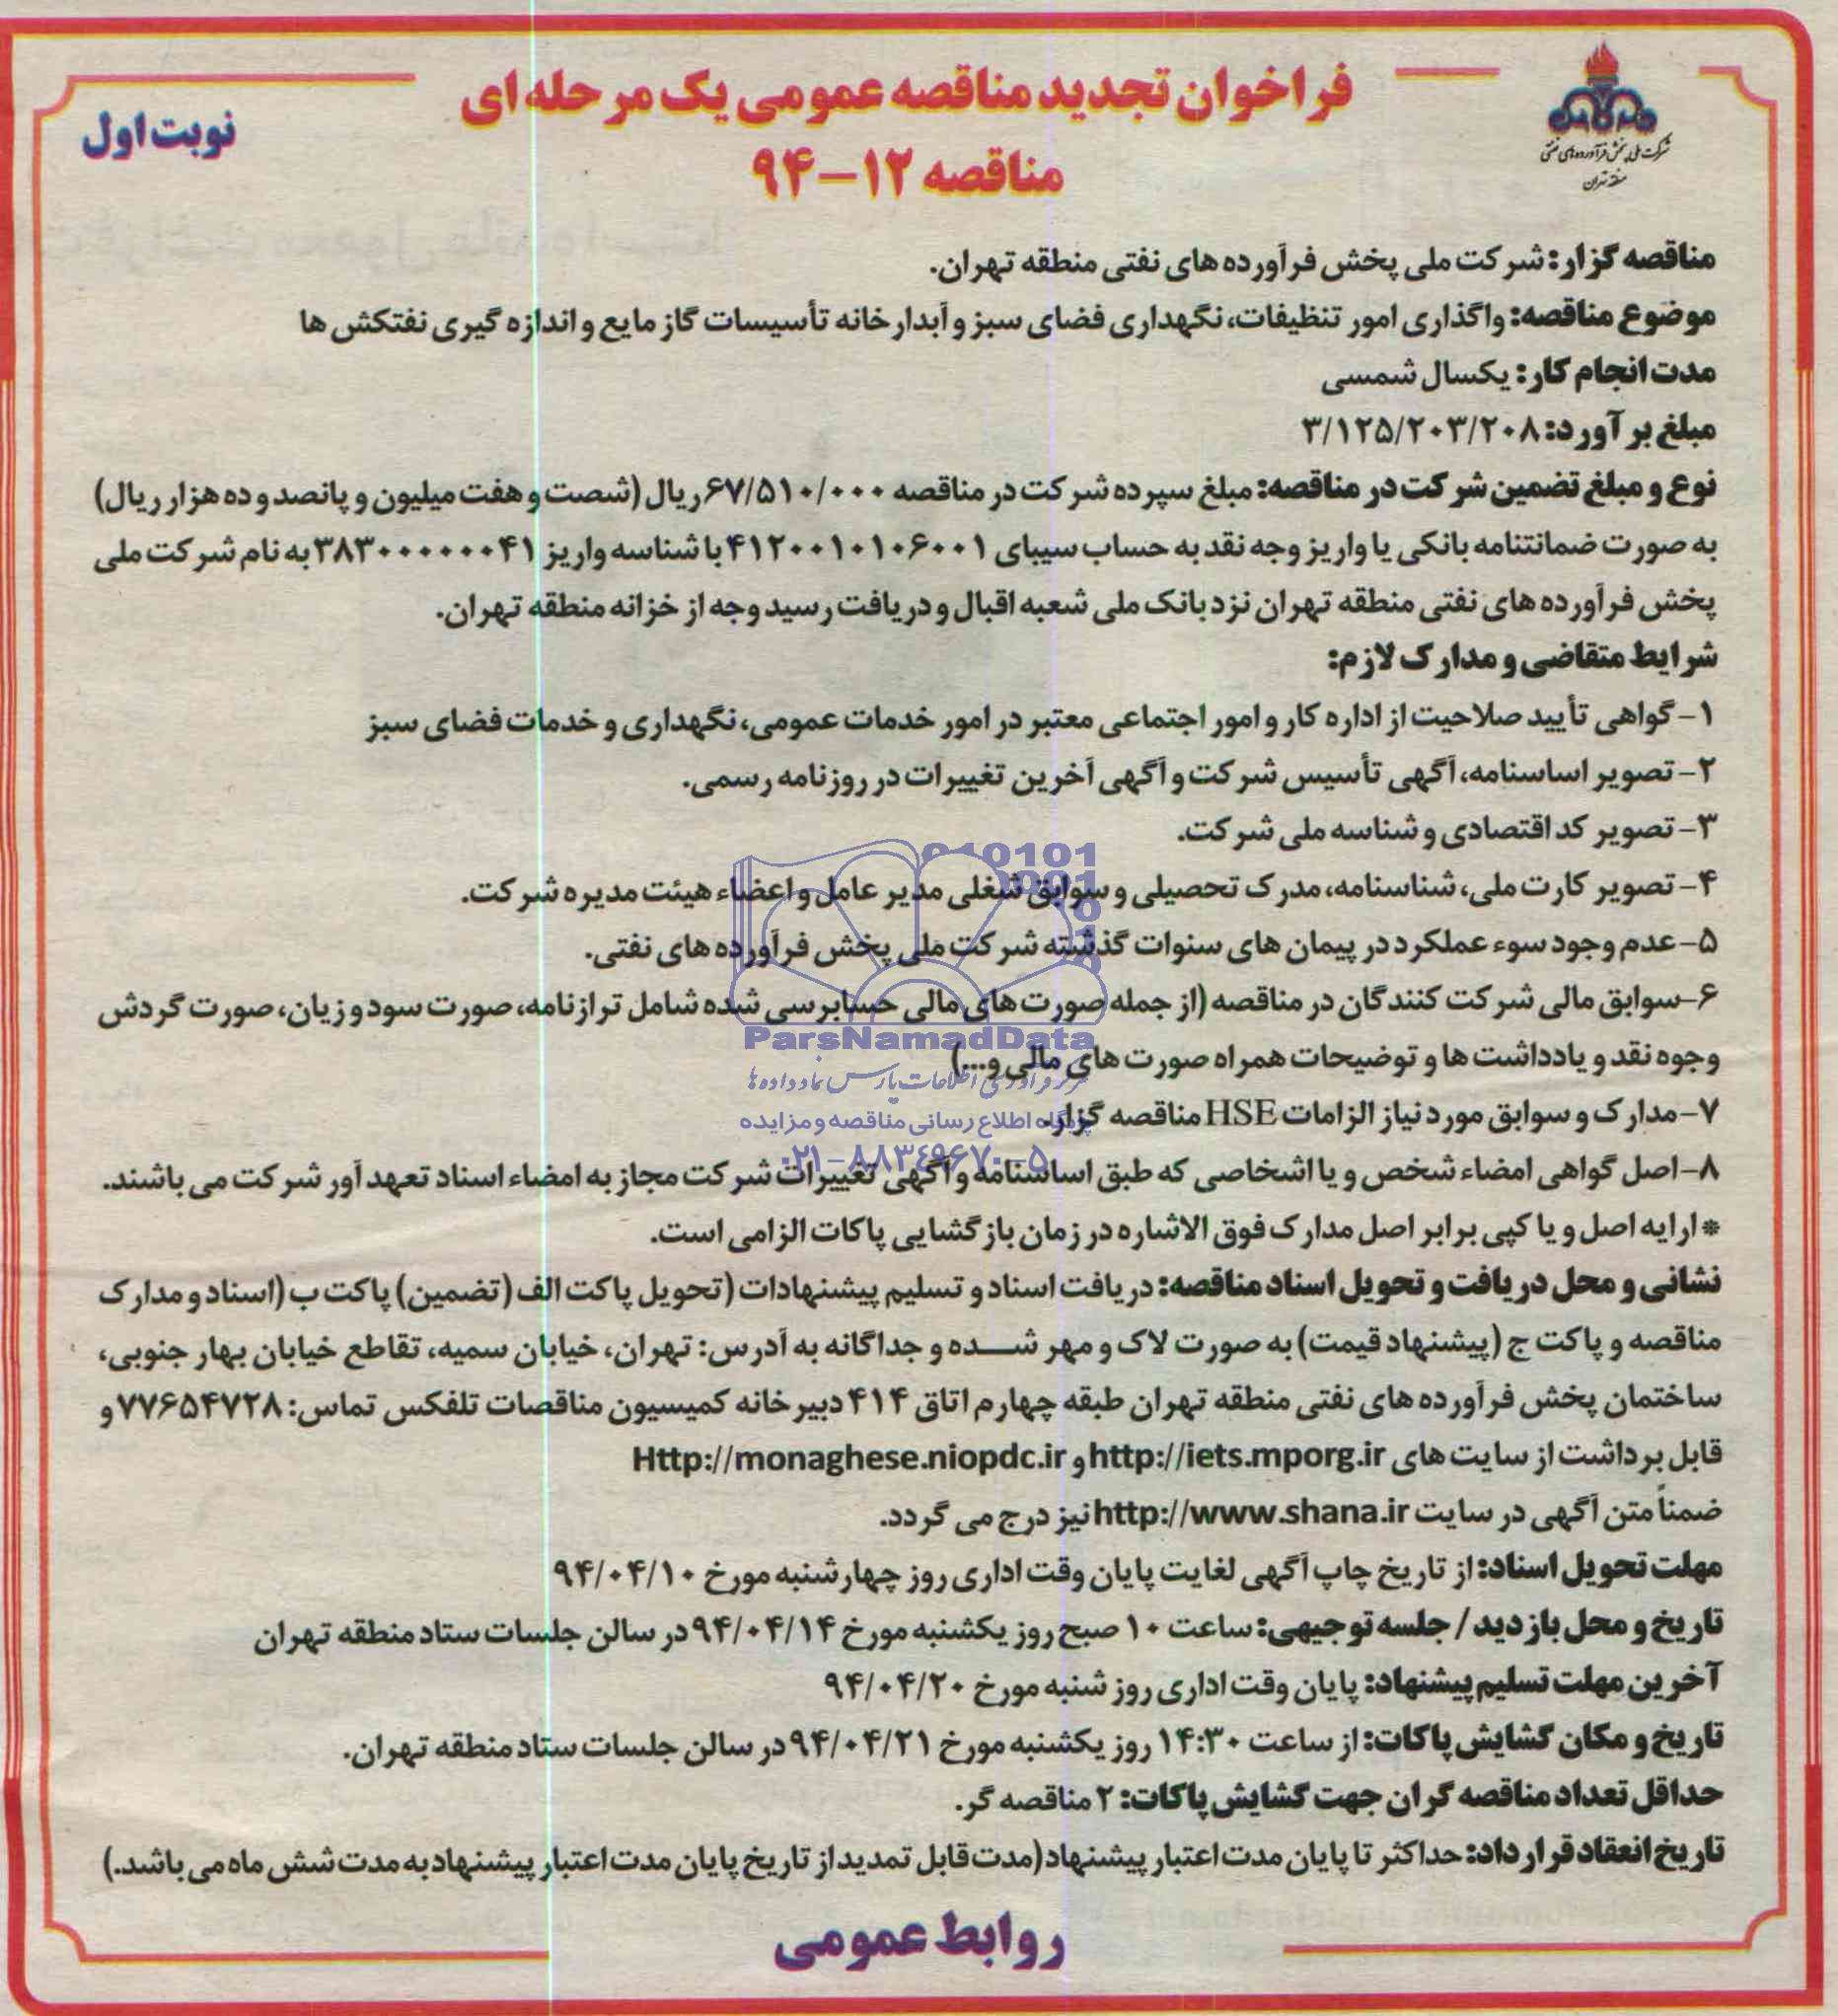 شرکت ملی پخش فرآورده‌های نفتی
منطقه تهران
فراخوان تجدید مناقصه عمومی یک مرحله ای
نوبت اول
مناقصه ۱۲-۹۴
مناقصه گزار: شرکت ملی پخش فرآورده های نفتی منطقه تهران.
موضوع مناقصه: واگذاری امور تنظیفات، نگهداری فضای سبز و آبدارخانه تأسیسات گاز مایع و اندازه گیری نفتکش ها
مدت انجام کار: یکسال شمسی
مبلغ برآورد: ۳/۱۲۵/۲۰۳/۲۰۸
نوع و مبلغ تضمین شرکت در مناقصه: مبلغ سپرده شرکت در مناقصه ۶۷/۵۱۰/۰۰۰ ریال (شصت و هفت میلیون و پانصد و ده هزار ریال)
به صورت ضمانتنامه بانکی یا واریز وجه نقد به حساب سیبای ۴۱۲۰۰۱۰۱۰۶۰۰۱ با شناسه واریز ۳۸۳۰۰۰۰۰۰۰۴۱ به نام شرکت ملی
پخش فرآورده های نفتی منطقه تهران نزد بانک ملی شعبه اقبال و دریافت رسید وجه از خزانه منطقه تهران.
شرایط متقاضی و مدارک لازم:
۱- گواهی تأیید صلاحیت از اداره کار و امور اجتماعی معتبر در امور خدمات عمومی، نگهداری و خدمات فضای سبز
۲- تصویر اساسنامه، آگهی تأسیس شرکت و آگهی آخرین تغییرات در روزنامه رسمی.
۳- تصویر کد اقتصادی و شناسه ملی شرکت.
۴- تصویر کارت ملی، شناسنامه، مدرک تحصیلی و سوابق شغلی مدیر عامل و اعضاء هیئت مدیره شرکت.
۵- عدم وجود سوء عملکرد در پیمان های سنوات گذشته شرکت ملی پخش فرآورده های نفتی.
۶- سوابق مالی شرکت کنندگان در مناقصه (از جمله صورت های مالی حسابرسی شده شامل ترازنامه، صورت سود و زیان، صورت گردش
وجوه نقد و یادداشت ها و توضیحات همراه صورت های مالی و...)
۷- مدارک و سوابق مورد نیاز الزامات HSE مناقصه گزار.
۸- اصل گواهی امضاء شخص و یا اشخاصی که طبق اساسنامه و آگهی تغییرات شرکت مجاز به امضاء اسناد تعهد آور شرکت می باشند.
* ارایه اصل و یا کپی برابر اصل مدارک فوق الاشاره در زمان بازگشایی پاکات الزامی است.
نشانی و محل دریافت و تحویل اسناد مناقصه: دریافت اسناد و تسلیم پیشنهادات (تحویل پاکت الف (تضمین) پاکت ب (اسناد و مدارک
مناقصه و پاکت ج (پیشنهاد قیمت) به صورت لاک و مهر شده و جداگانه به آدرس: تهران، خیابان سمیه، تقاطع خیابان بهار جنوبی،
ساختمان پخش فرآورده های نفتی منطقه تهران طبقه چهارم اتاق ۴۱۴ دبیرخانه کمیسیون مناقصات تلفکس تماس: ۷۷۶۵۴۷۲۸ و
قابل برداشت از سایت های http://iets.mporg.ir و Http://monaghese.niopdc.ir
ضمناً متن آگهی در سایت http://www.shana.ir نیز درج می گردد.
مهلت تحویل اسناد: از تاریخ چاپ آگهی لغایت پایان وقت اداری روز چهارشنبه مورخ ۹۴/۰۴/۱۰
تاریخ و محل بازدید / جلسه توجیهی: ساعت ۱۰ صبح روز یکشنبه مورخ ۹۴/۰۴/۱۴ در سالن جلسات ستاد منطقه تهران
آخرین مهلت تسلیم پیشنهاد: پایان وقت اداری روز شنبه مورخ ۹۴/۰۴/۲۰
تاریخ و مکان گشایش پاکات: از ساعت ۱۴:۳۰ روز یکشنبه مورخ ۹۴/۰۴/۲۱ در سالن جلسات ستاد منطقه تهران.
حداقل تعداد مناقصه گران جهت گشایش پاکات: ۲ مناقصه گر.
تاریخ انعقاد قرارداد: حداکثر تا پایان مدت اعتبار پیشنهاد (مدت قابل تمدید از تاریخ پایان مدت اعتبار پیشنهاد به مدت شش ماه می باشد.)
روابط عمومی
ParsNamadData
مرکز فرآوری اطلاعات پارس نماد داده ها
پایگاه اطلاع رسانی مناقصه و مزایده
۰۲۱-۸۸۳۴۹۶۷۰-۵